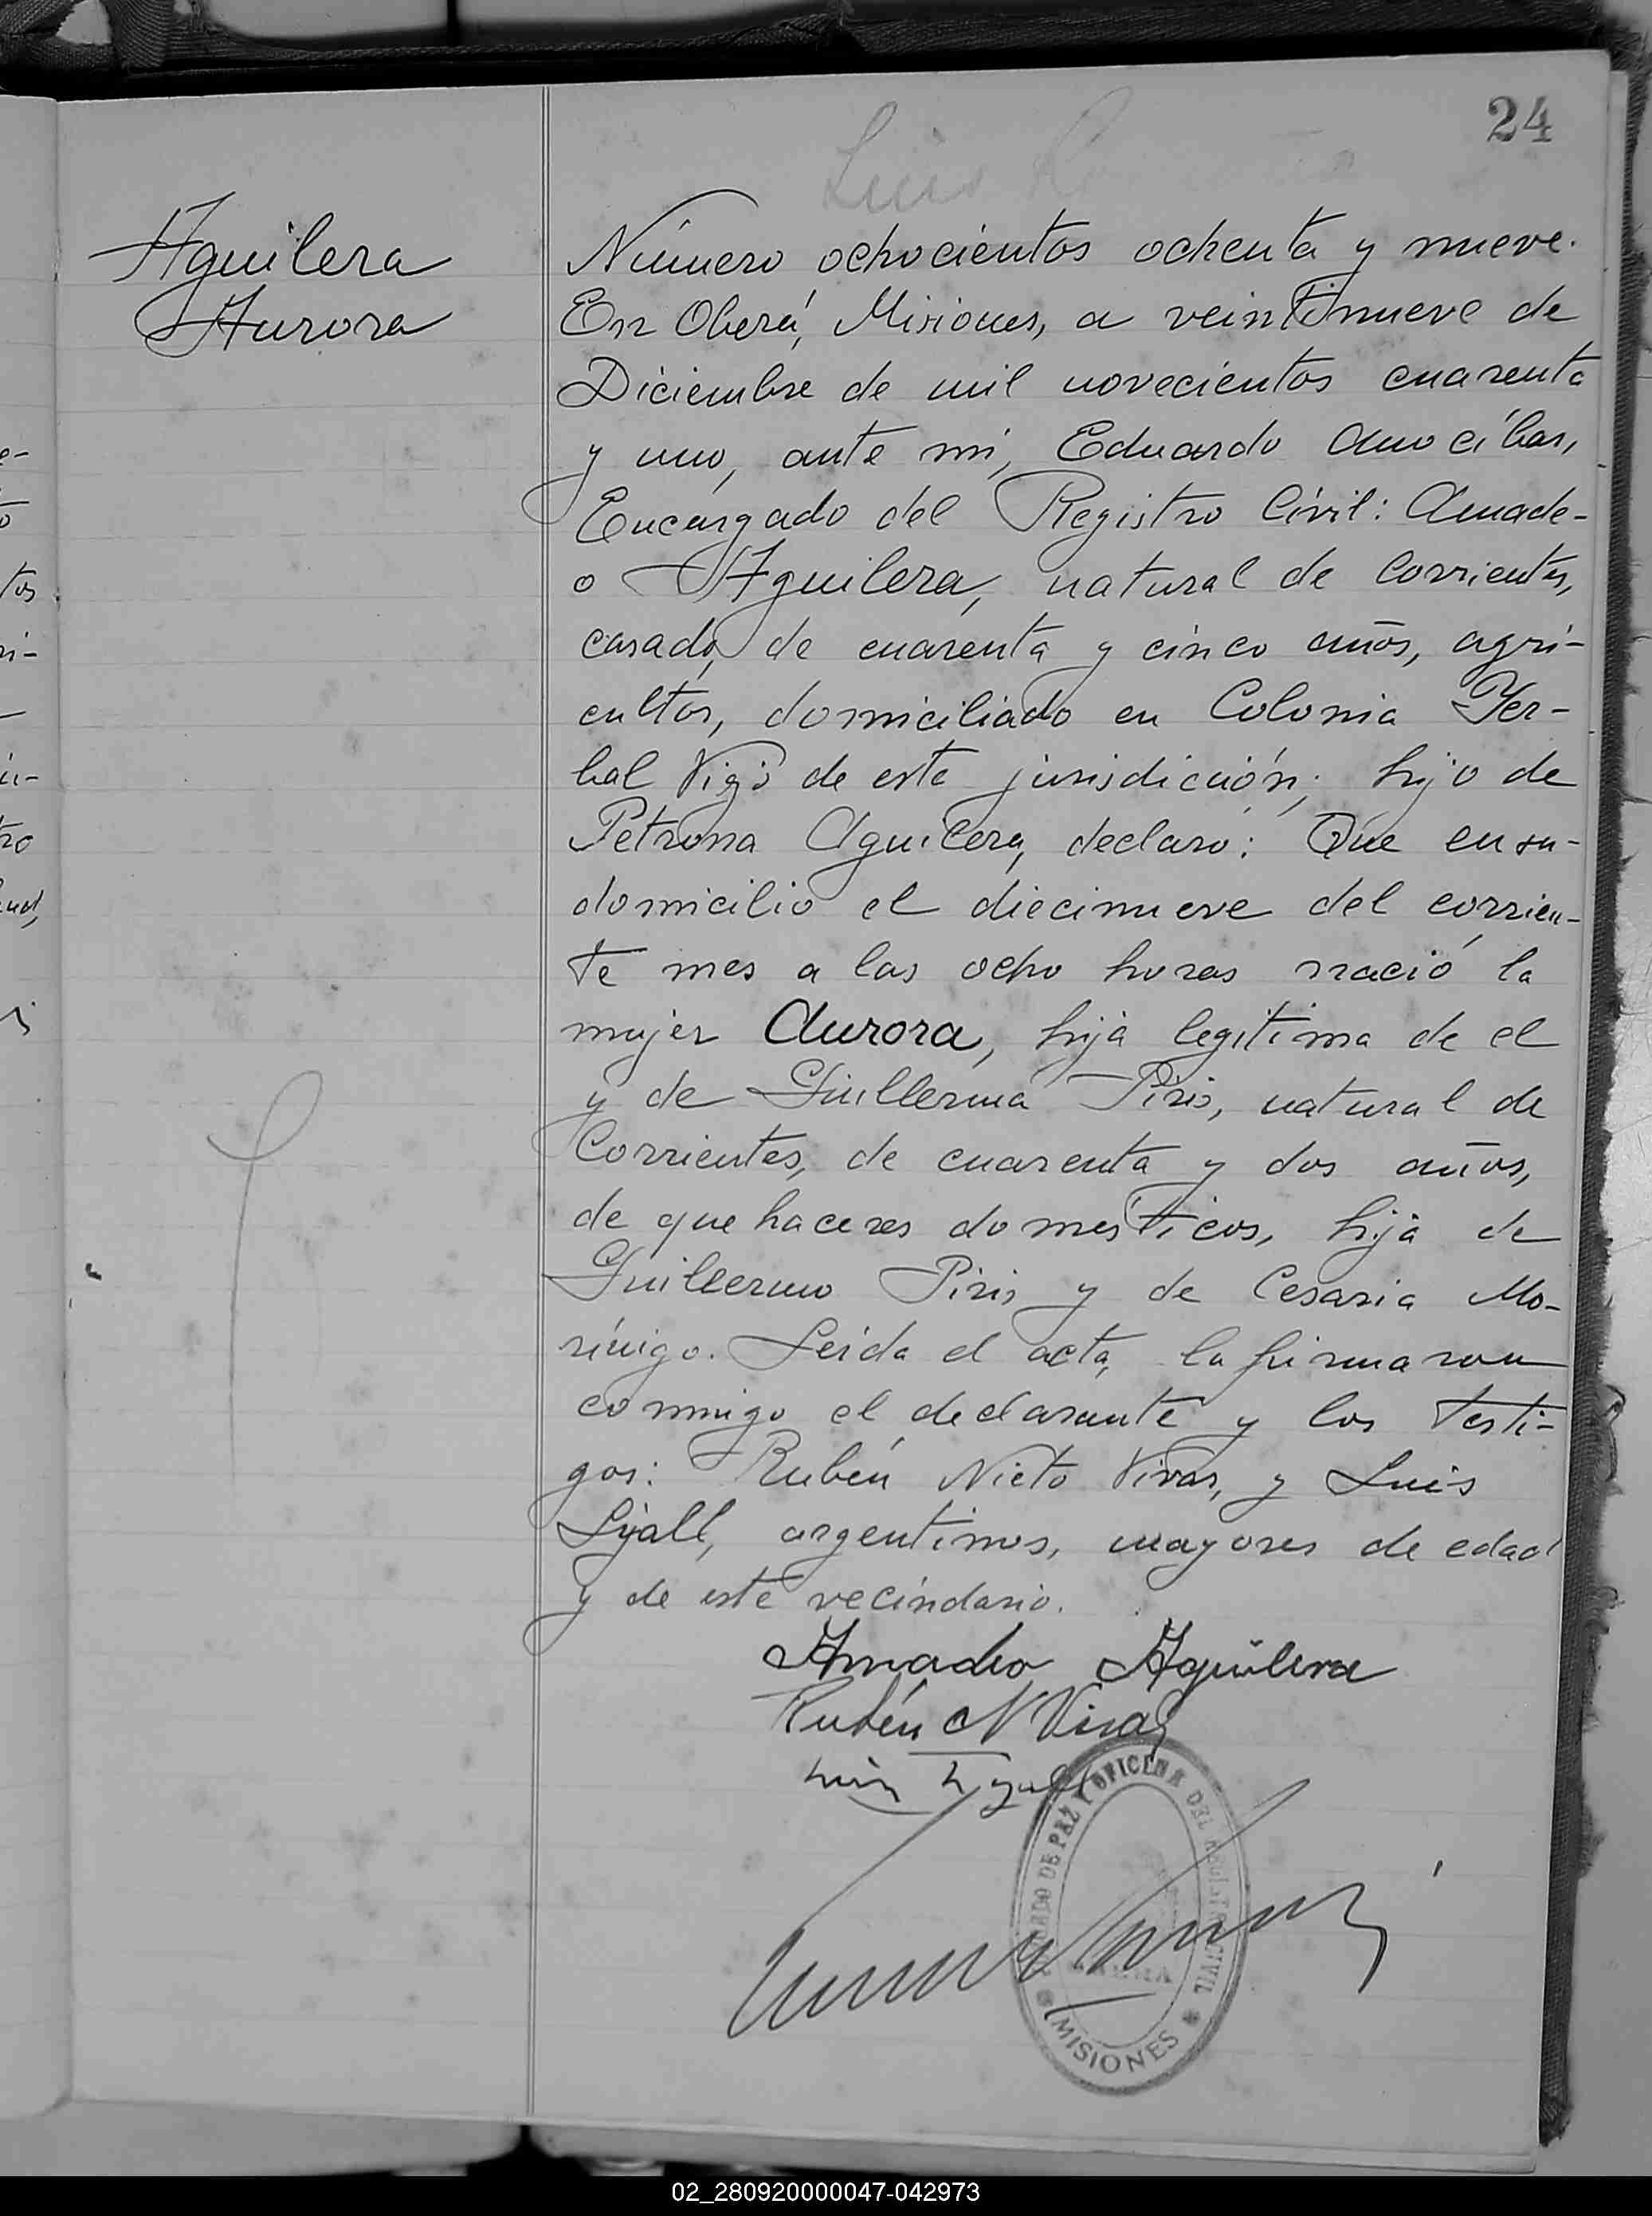 24
Luis
Aguilera
Aurora
Número ochocientos ochenta y nueve.
En Oberá, Misiones, a veintinueve de
Diciembre de mil novecientos cuarenta
y uno, ante mi, Eduardo Amocibar,
Encargado del Registro Civil: Amade-
o Aguilera, natural de Corrientes,
casado, de cuarenta y cinco años, agri-
cultor, domiciliado en Colonia Yer-
bal Vigo de esta jurisdicción; hijo de
Petrona Aguilera, declaró: Que en su-
domicilio el diecinueve del corrien-
te mes a las ocho horas nació la
mujer Aurora, hija legitima de el
y de Guillerma Piris, natural de
Corrientes, de cuarenta y dos años,
de que haceres domésticos, hija de
Guillermo Piris y de Cesaria Mo-
rínigo. Leída el acta, la firmaron
conmigo el declarante y los testi-
gos: Rubén Nieto Vivas, y Luis
Lyall, argentinos, mayores de edad
y de este vecindario.
Amadeo Aguilera
Rubén N Vivas
Luis Lyall
JUZGADO DE PAZ Y OFICINA DEL REGISTRO CIVIL
MISIONES
02_280920000047-042973